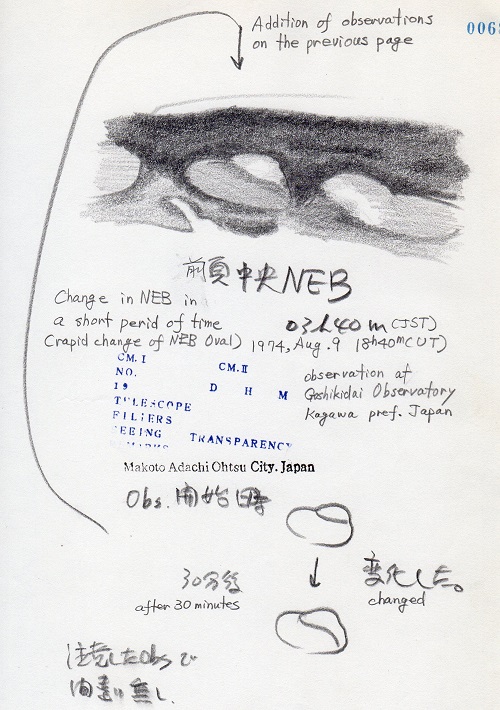 Addition of observations
on the previous page
006
前頁中央NEB
Change in NEB in
a short perid of time
(rapid change of NEB Oval)
03h40m(JST)
1974, Aug. 9 18h40m(UT)
CM.I CM.II
NO.
19 D H M
TELESCOPE
FILTERS
SEEING TRANSPARENCY
observation at
Goshikidai Observatory
Kagawa pref. Japan
Makoto Adachi Ohtsu City. Japan
Obs. 開始時
30分後
after 30 minutes
変化した。
changed
注意したObsで
間違い無し.